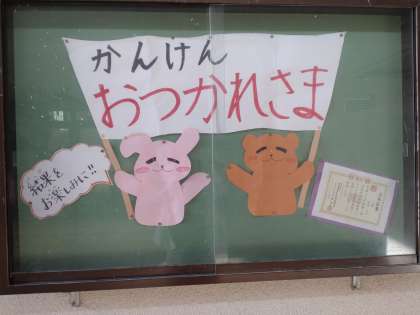 かんけん
おつかれさま
結果を
お楽しみに!!